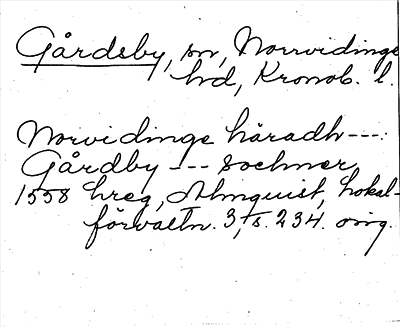 Gårdsby, sn, Norrvidinge
hd, Kronob. l.
Norvidinge häradh---:
Gårdby --- sochner
1558 hreg, Almquist, Lokal-
förvaltn. 3, s. 234. orig.